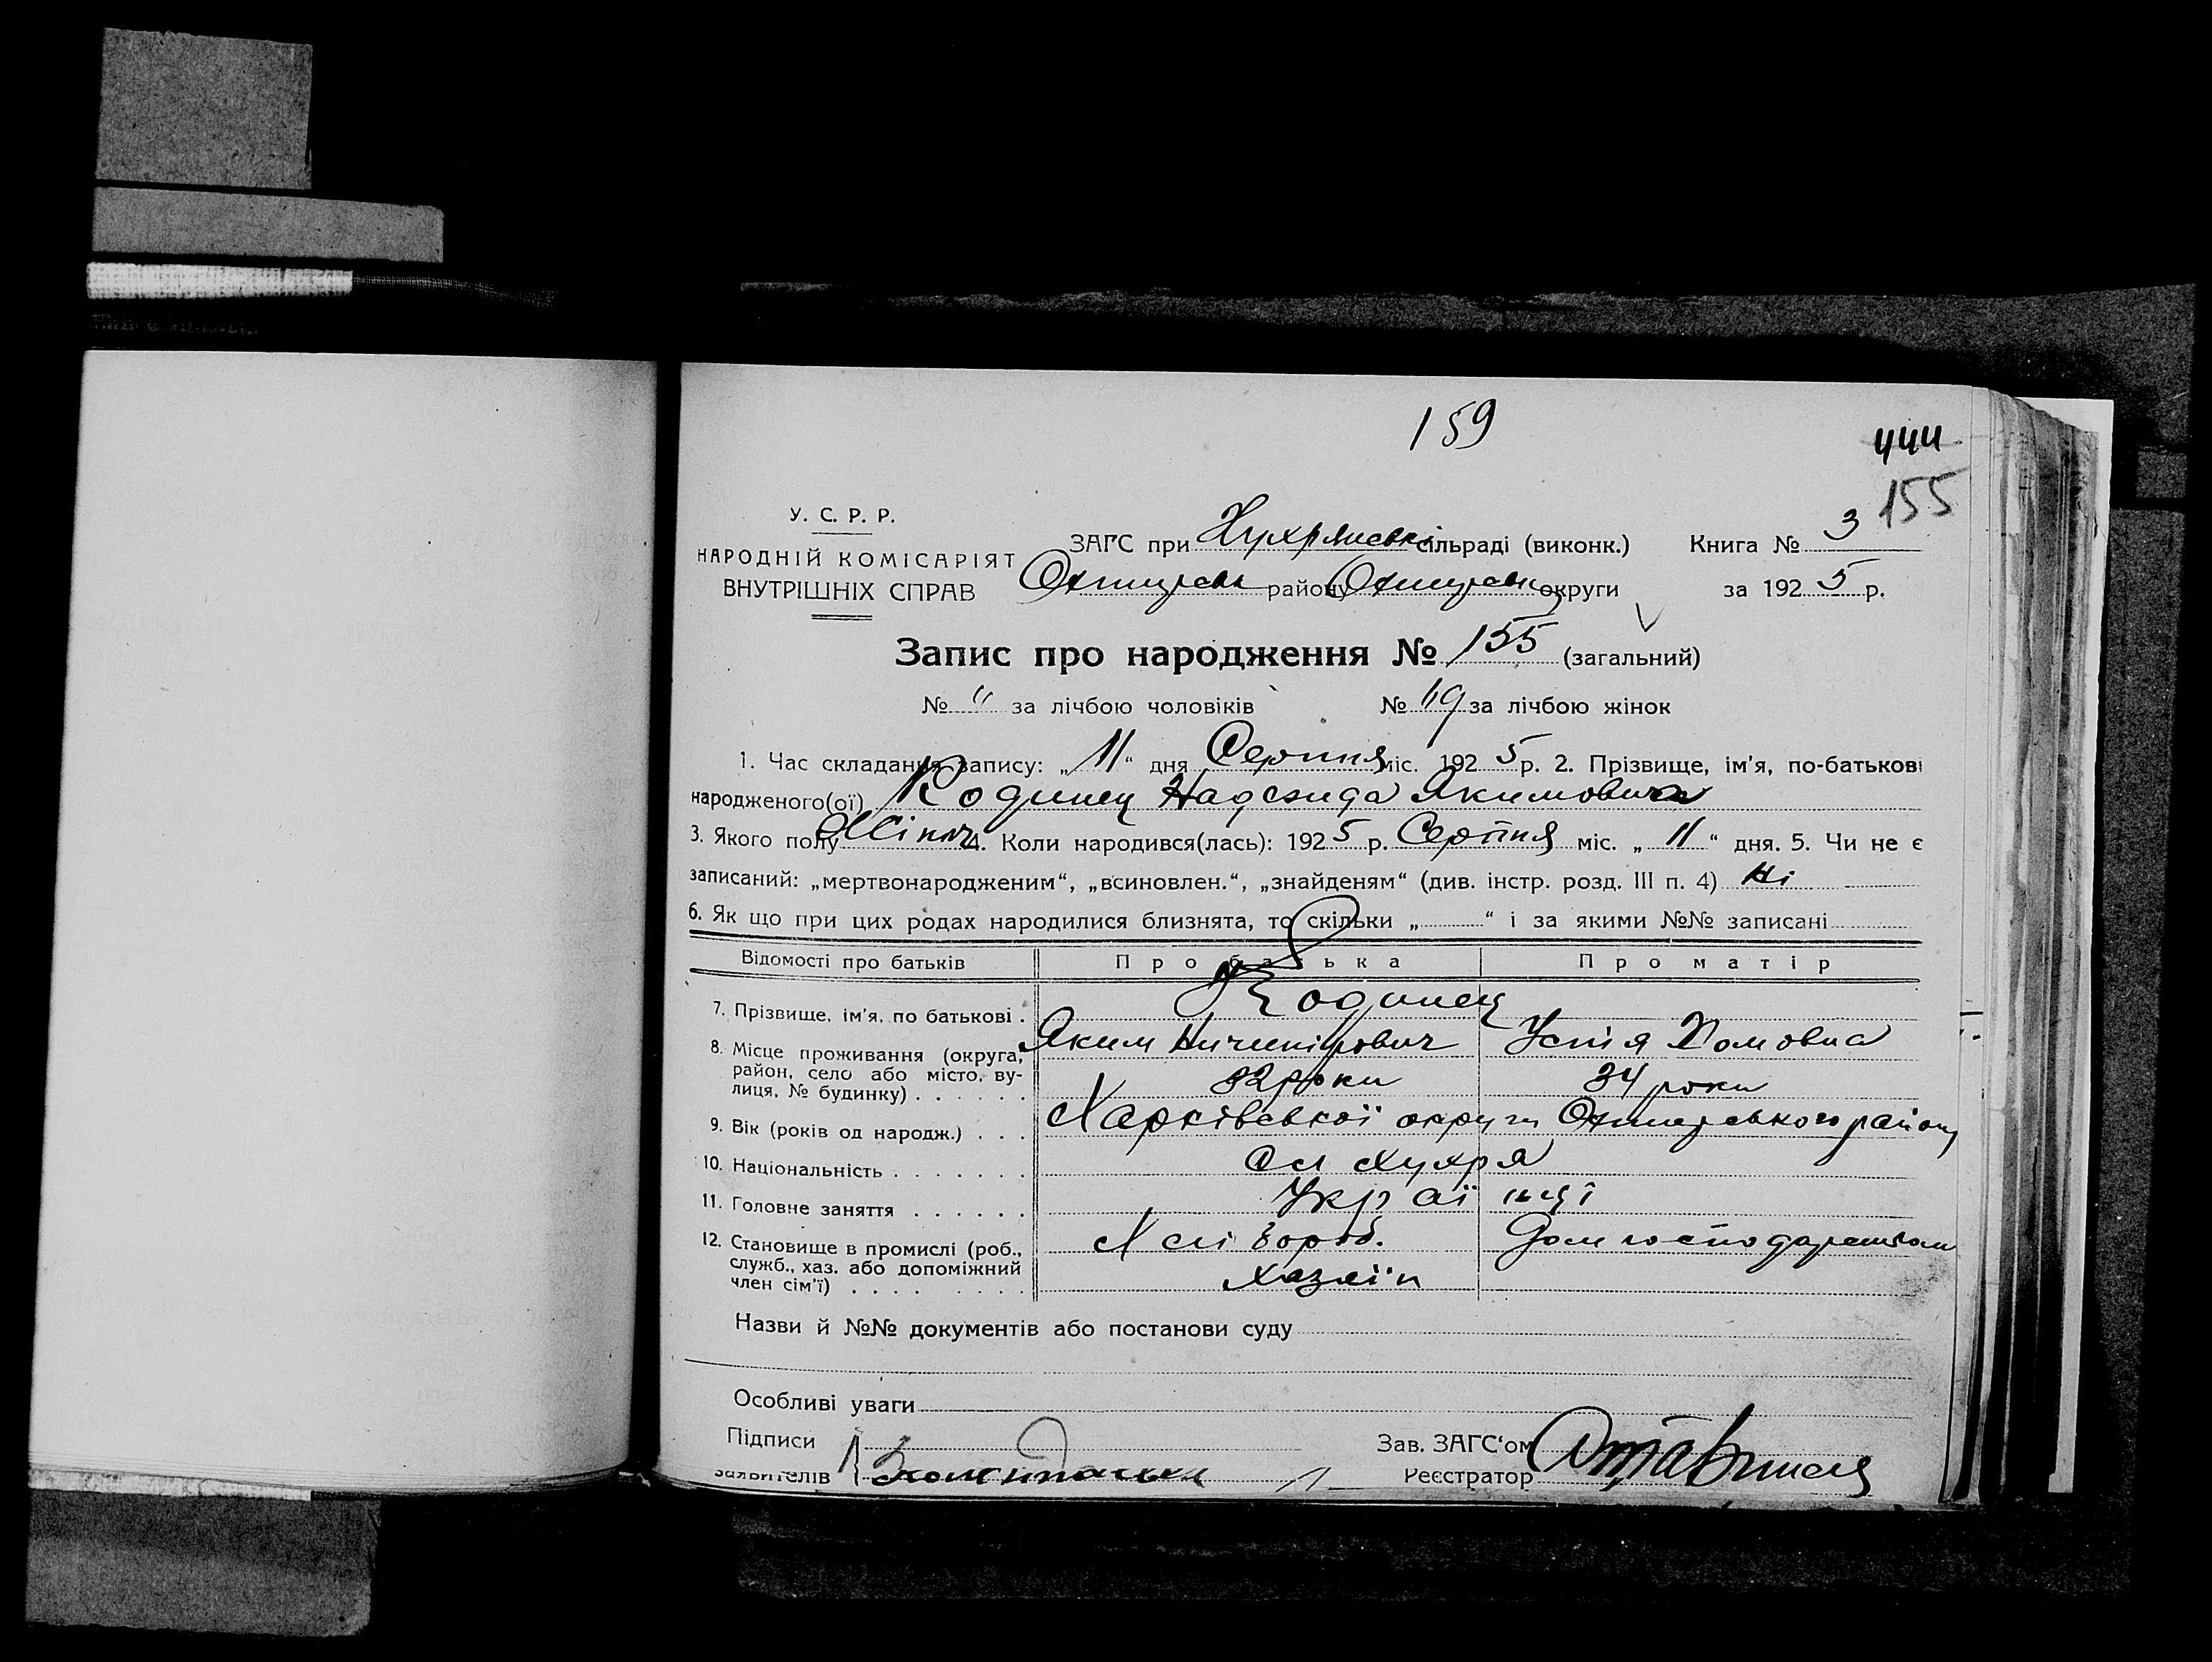 159
444
155
У. С. Р. Р.
НАРОДНІЙ КОМІСАРІЯТ
ВНУТРІШНІХ СПРАВ
ЗАГС при Хухрянськ сільраді (виконк.) Книга № 3
Охтирськ району Охтирськ округи за 1925 р.
Запис про народження № 155 (загальний)
№ " за лічбою чоловіків № 69 за лічбою жінок
1. Час складання запису: „11“ дня Серпня міс. 1925 р. 2. Прізвище, ім'я, по-батькові
народженого(ої) Родинец Надежида Якимовна
3. Якого полу Жіноч 4. Коли народився(лась): 1925 р. Серпня міс. „11“ дня. 5. Чи не є
записаний: „мертвонародженим“, „всиновлен.“, „знайденям“ (див. інстр. розд. III п. 4) Ні
6. Як що при цих родах народилися близнята, то скільки „ “ і за якими №№ записані
Відомості про батьків Про батька Про матір
7. Прізвище, ім'я, по батькові . Родинец
Яким Ничипірович Устія Хомовна
8. Місце проживання (округа, район, село або місто, вулиця, № будинку) . . . . . . 32 роки 34 роки
9. Вік (років од народж.) . . . Харківської округи Охтирського району
10. Національність . . . . . . . Сл Хухря
11. Головне заняття . . . . . . Україн ці
12. Становище в промислі (роб., служб., хаз. або допоміжний член сім'ї) . . . . Хлі бороб. Дом господарством
Хазяїн
Назви й №№ документів або постанови суду
Особливі уваги
Підписи
заявителів
Зав. ЗАГС'ом
Реєстратор